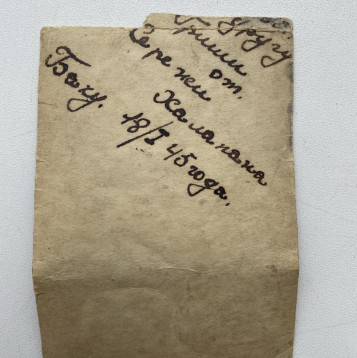 другу
Гриши
от.
Сережи
Калапана
18/I 45 года.
Баку.